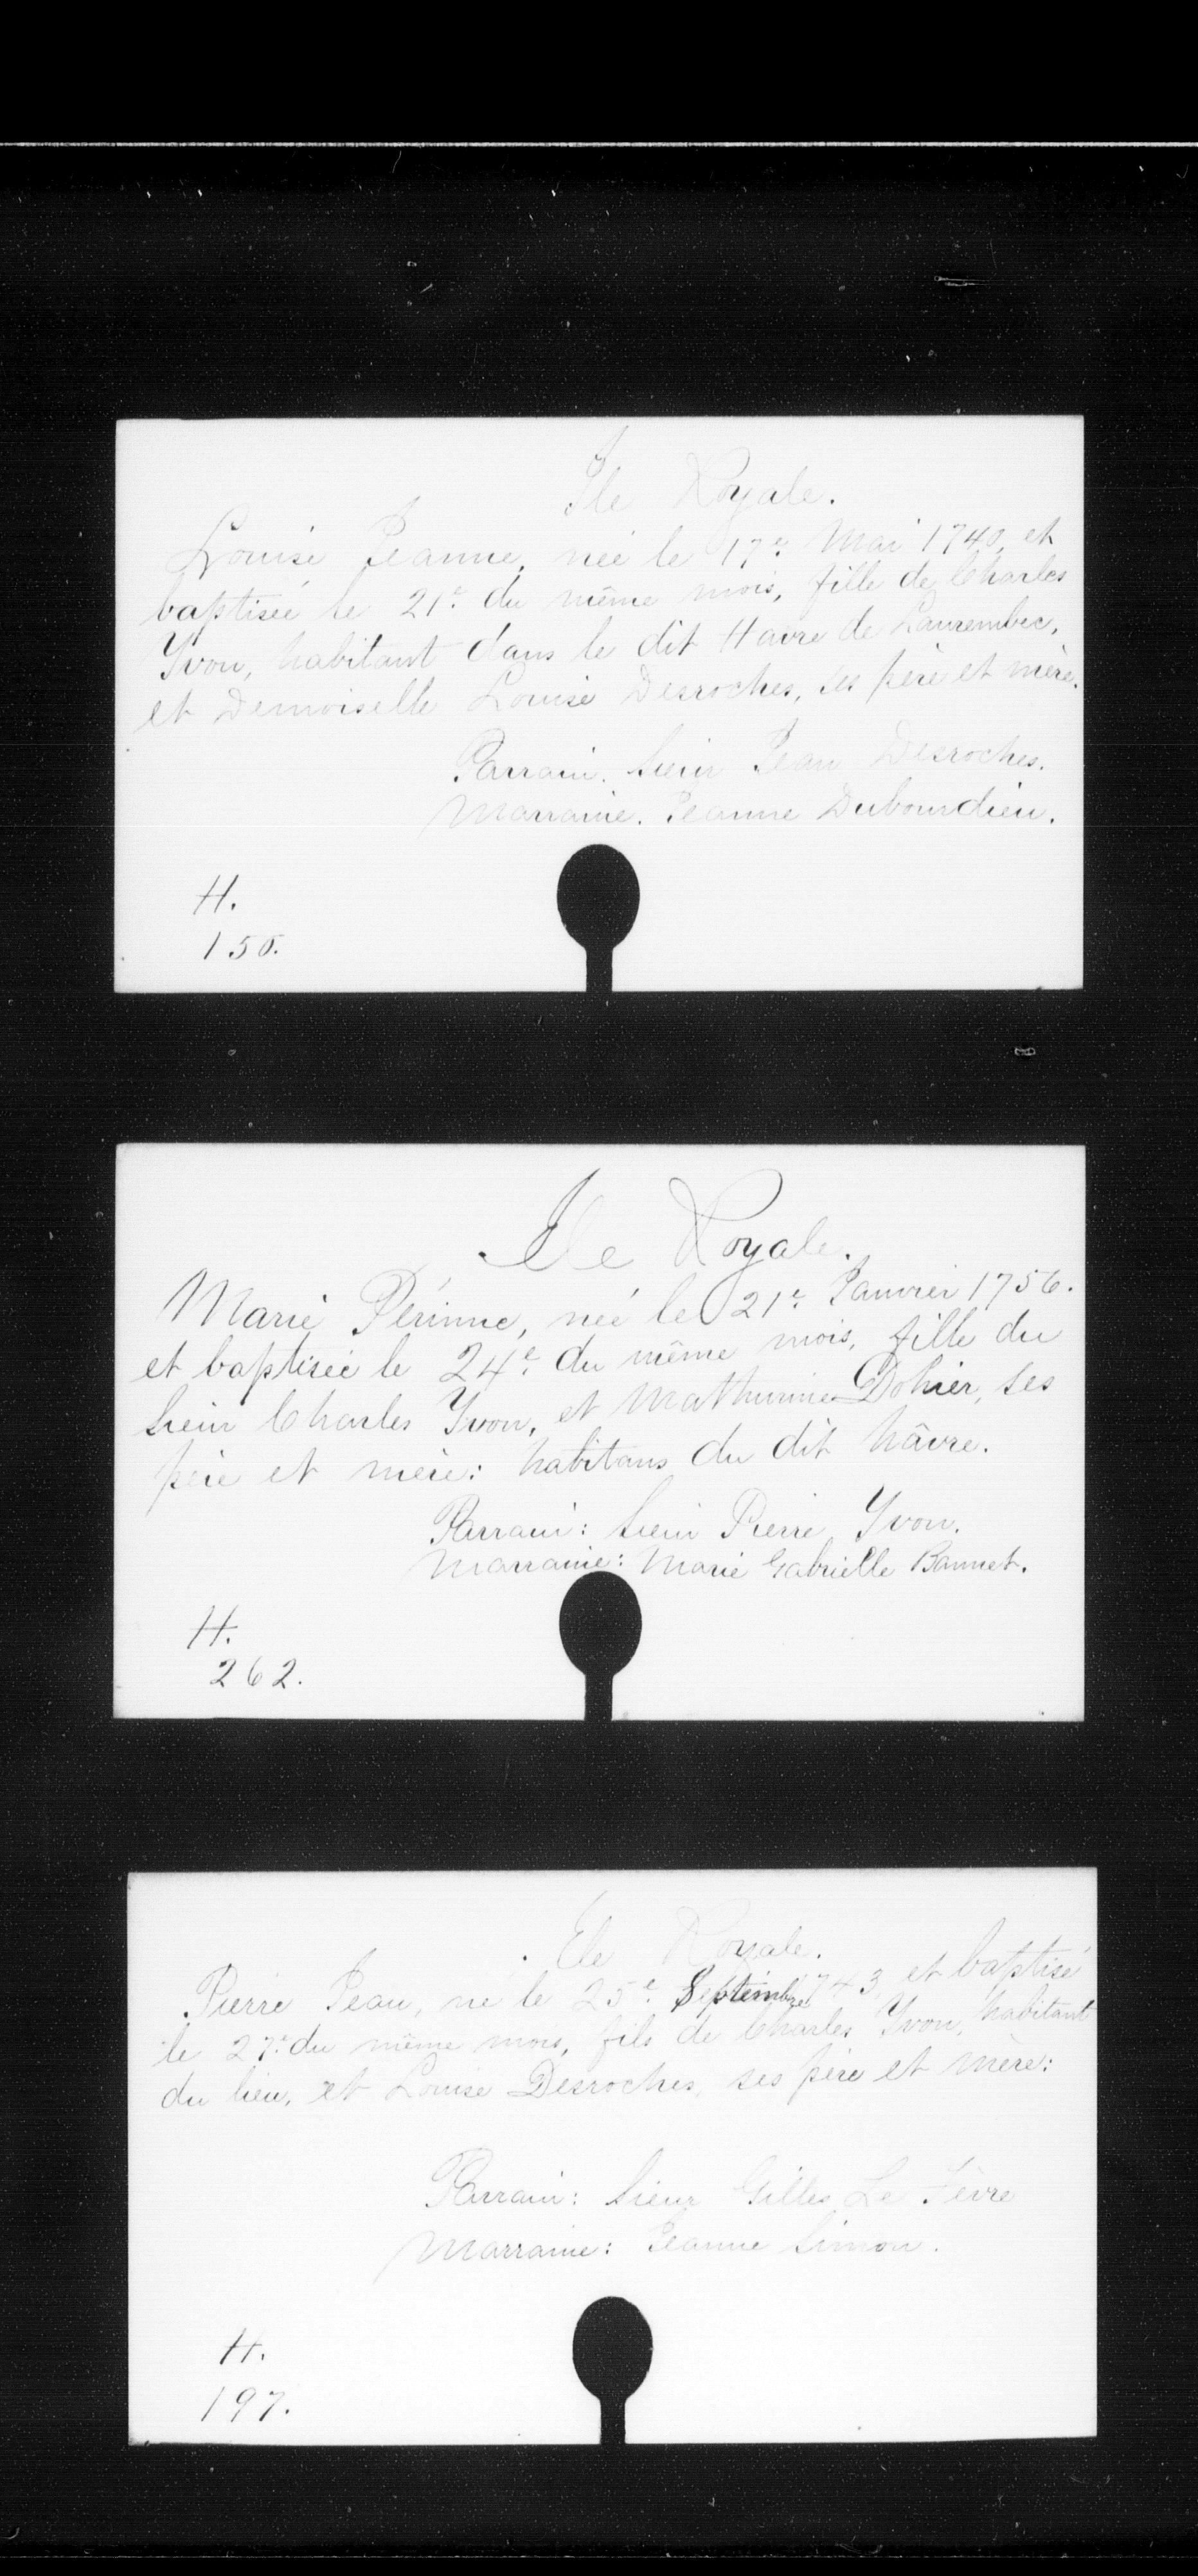 Ile Royale.
Louise Jeanne, née le 17e Mai 1740, et
baptisée le 21e du même mois, fille de Charles
Yvon, habitant dans le dit Havre de Laurembec,
et Demoiselle Louise Desroches, ses père et mère.
Parrain. Sieur Jean Desroches.
Marraine. Jeanne Dubourdieu.
H.
150.
Ile Royale.
Marie Périnne, née le 21e Janvier 1756.
et baptisée le 24e du même mois, fille du
Sieur Charles Yvon, et Mathurine Dohier, ses
père et mère: habitans du dit hâvre.
Parrain: Sieur Pierre Yvon.
Marraine: Marie Gabrielle Bannet.
H.
262.
Ile Royale.
Pierre Jean, né le 25e Septembre 1743, et baptisé
le 27e du même mois, fils de Charles Yvon, habitant
du lieu, et Louise Desroches, ses père et mère:
Parrain: Sieur Gilles Le Fèvre
Marraine: Jeanne Simon.
H.
197.